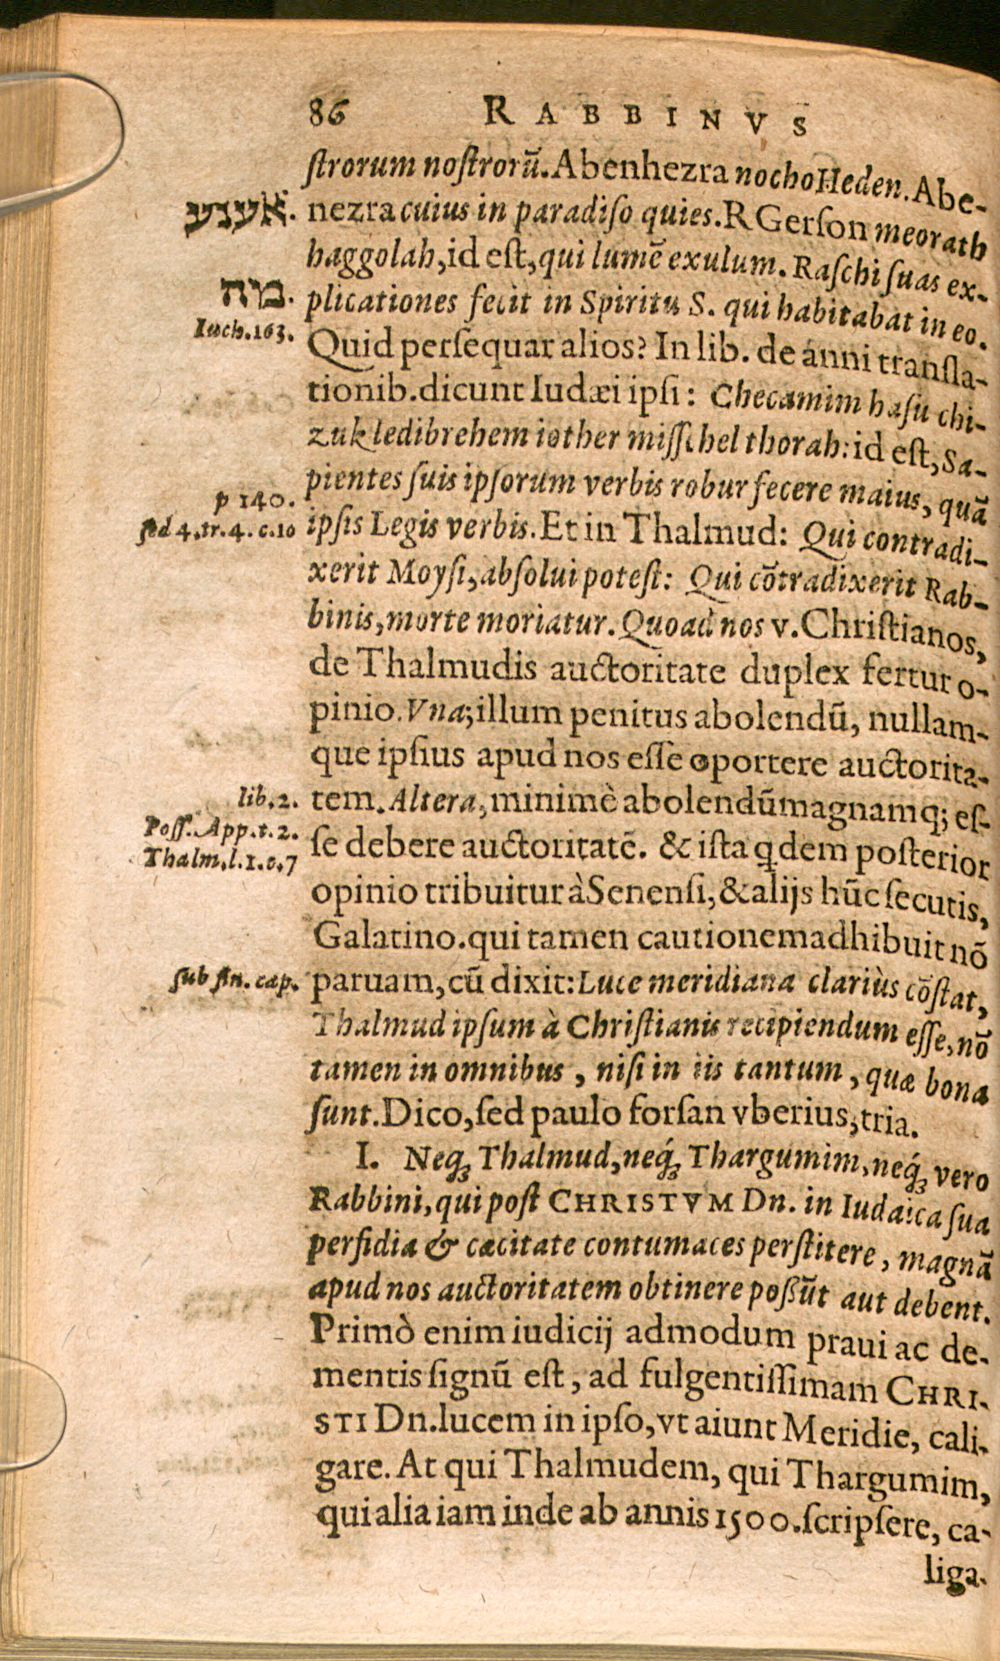 86 RABBINVS
ſtrorum noſtrorũ. Abenhezra nocho Heden. Abe-
אענע.
nezra cuius in paradiſo quies. R Gerſon meorath
haggolah, id eſt, qui lumẽ exulum. Raſchi ſuas ex-
מה.
plicationes fecit in Spiritu S. qui habitabat in eo.
Iuch. 163.
Quid perſequar alios? In lib. de anni tranſla-
tionib. dicunt Iudæi ipſi: Checamim haſu chi-
zuk ledibrehem iother miſſchel thorah: id eſt, Sa-
pientes ſuis ipſorum verbis robur fecere maius, quã
p 140.
ſed 4. tr. 4. c. 10
ipſis Legis verbis. Et in Thalmud: Qui contradi-
xerit Moyſi, abſolui poteſt: Qui cõtradixerit Rab-
binis, morte moriatur. Quoad nos v. Chriſtianos,
de Thalmudis auctoritate duplex fertur o-
pinio. Vna; illum penitus abolendũ, nullam-
que ipſius apud nos eſſe oportere auctorita-
lib. 2.
tem. Altera, minimè abolendũ magnamq; eſ-
Poſſ. App. t. 2.
Thalm. l. 1. c. 7
ſe debere auctoritatẽ. & iſta q̃dem poſterior
opinio tribuitur à Senenſi, & alijs hũc ſecutis,
Galatino. qui tamen cautionem adhibuit nõ
ſub fin. cap.
paruam, cũ dixit: Luce meridiana clariùs cõſtat,
Thalmud ipſum à Chriſtianis recipiendum eſſe, nõ
tamen in omnibus, niſi in iis tantum, quæ bona
ſunt. Dico, ſed paulo forſan vberius, tria.
I. Neq́; Thalmud, neq́; Thargumim, neq́; vero
Rabbini, qui poſt CHRISTVM Dn. in Iudaica ſua
perfidia & cæcitate contumaces perſtitere, magnã
apud nos auctoritatem obtinere poßũt aut debent.
Primò enim iudicij admodum praui ac de-
mentis ſignũ eſt, ad fulgentiſſimam CHRI-
STI Dn. lucem in ipſo, vt aiunt Meridie, cali-
gare. At qui Thalmudem, qui Thargumim,
qui alia iam inde ab annis 1500. ſcripſere, ca-
liga-